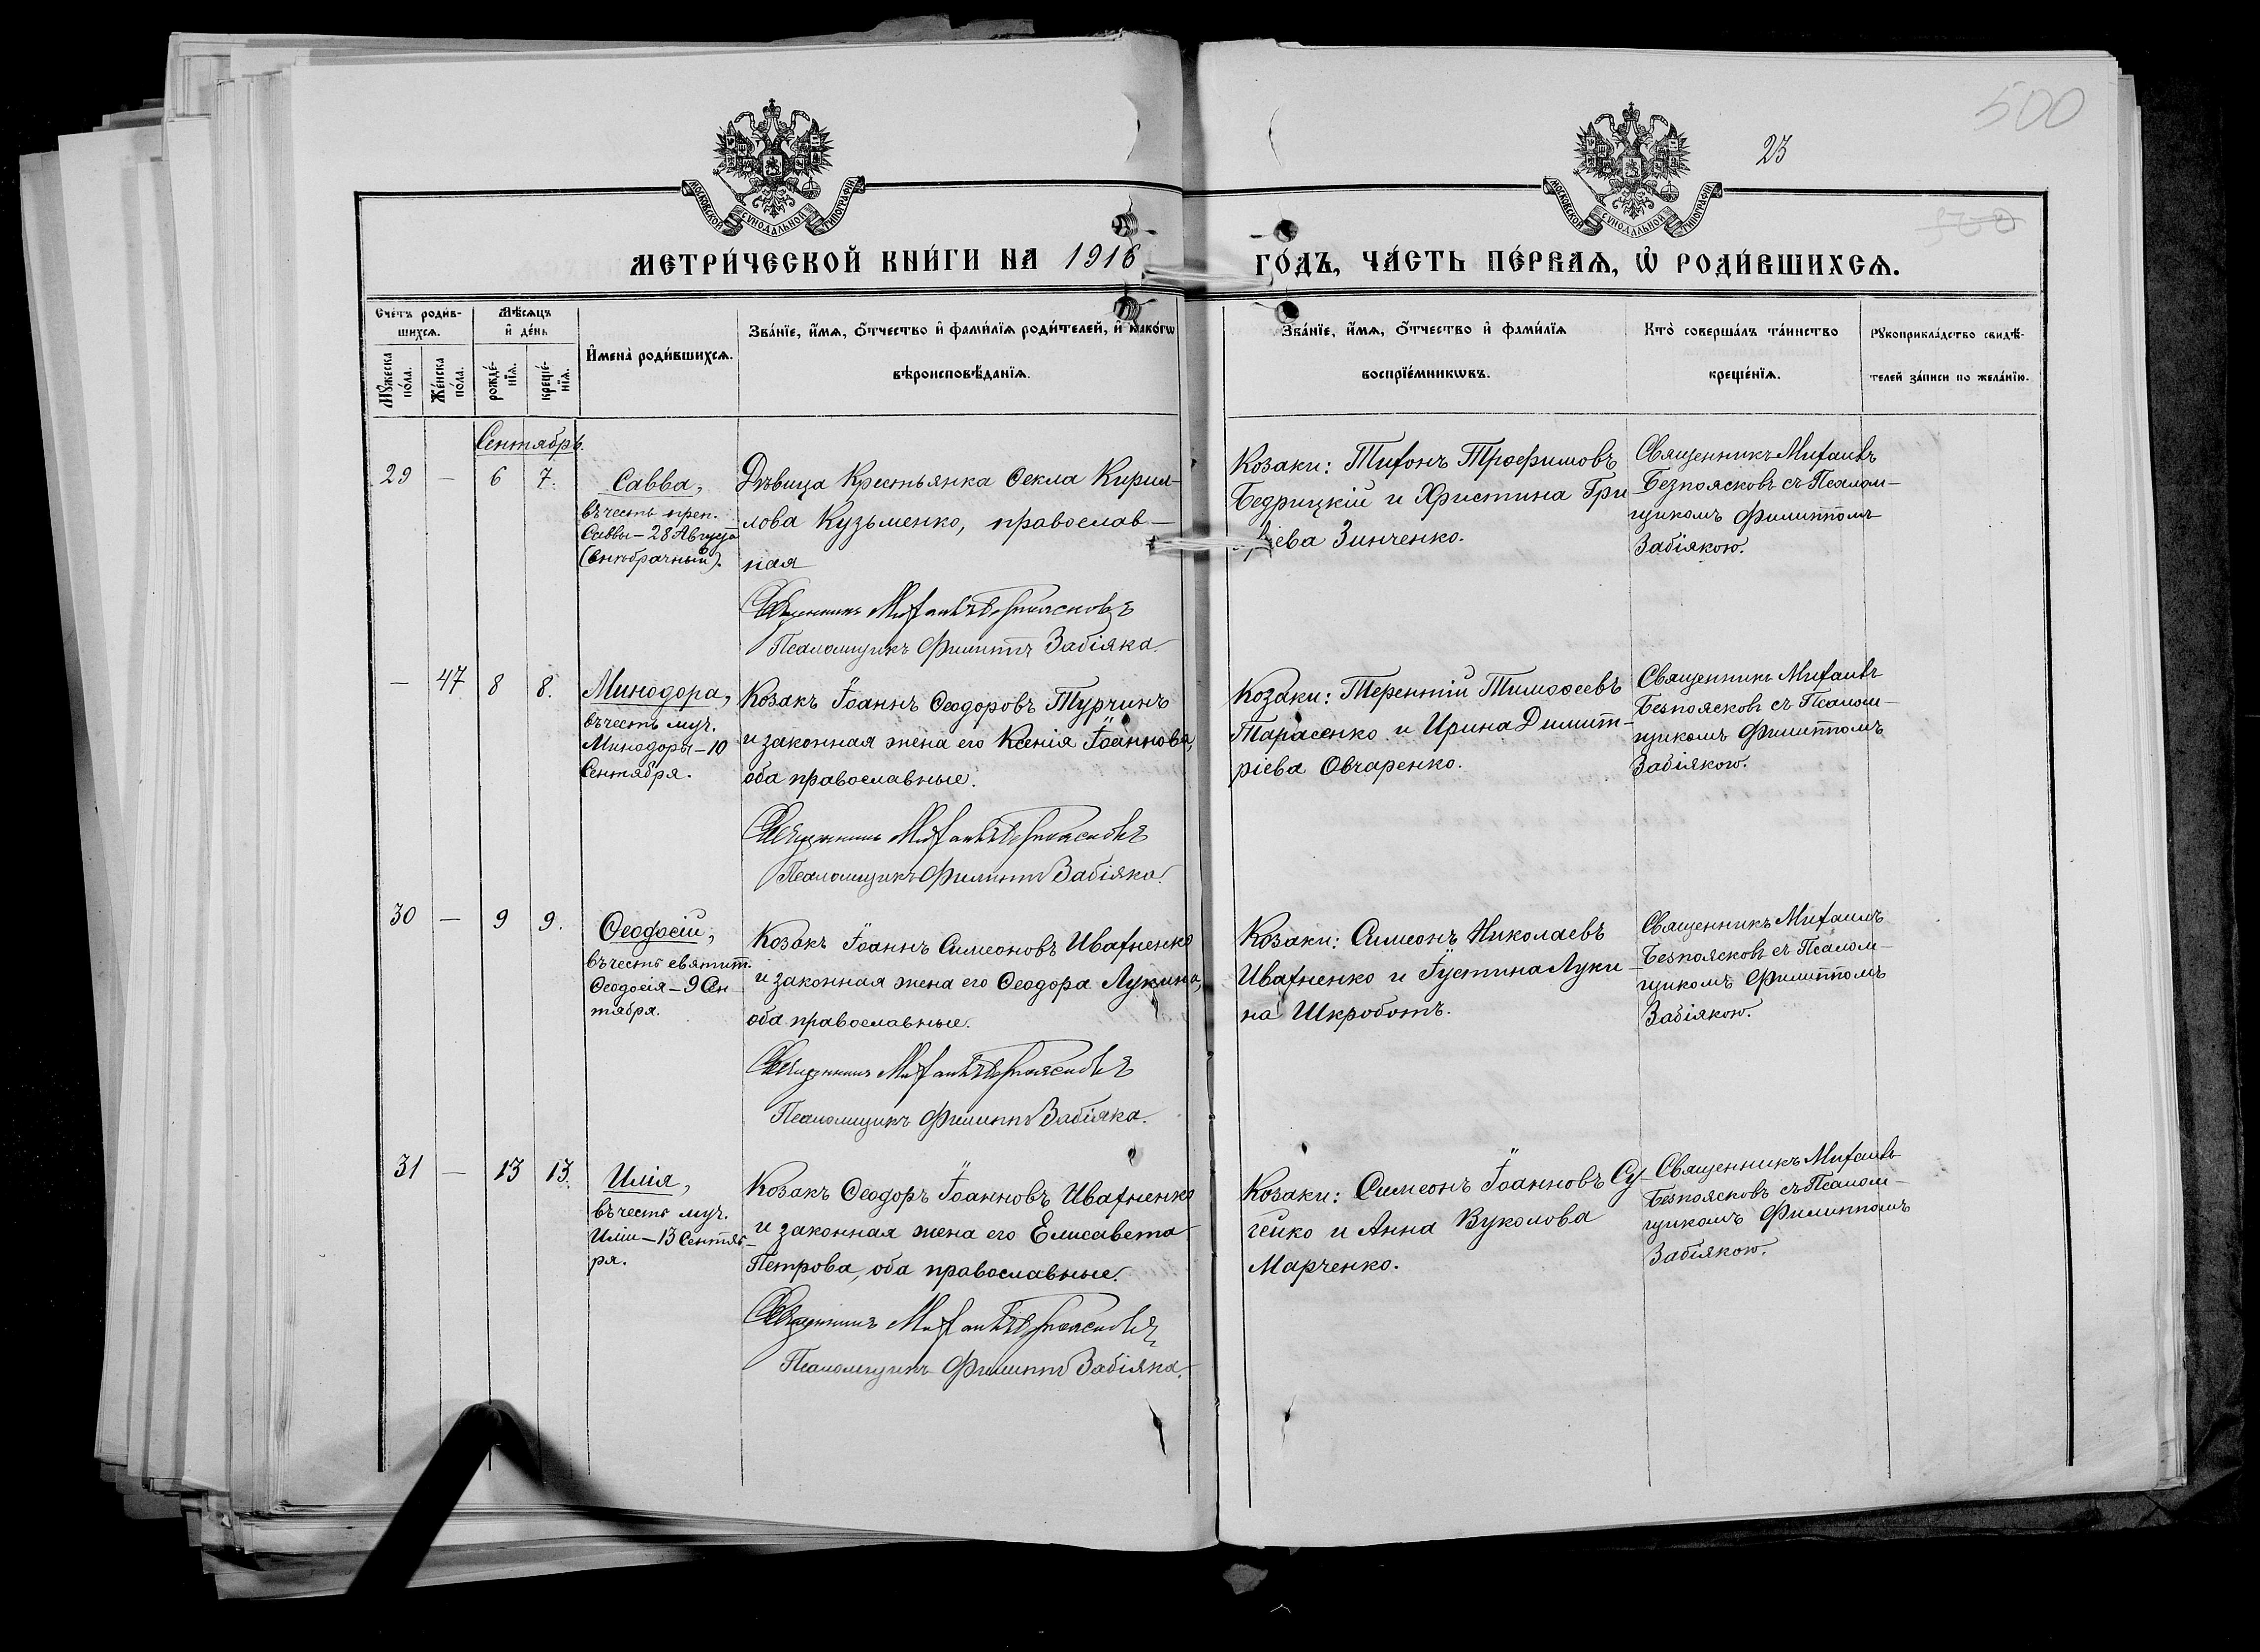 500
23
МОСКОВСКОЙ СѴНОДАЛЬНОЙ ТИПОГРАФІИ
МОСКОВСКОЙ СѴНОДАЛЬНОЙ ТИПОГРАФІИ
МЕТРИ́ЧЕСКОЙ КНИ́ГИ НА 1916
ГО́ДЪ, ЧА́СТЬ ПЕ́РВАѦ, Ѽ РОДИ́ВШИХСѦ.
Сче́тъ роди́в-
шихсѧ.
Мѣ́сѧцъ
и҆ де́нь
Мꙋ́жеска
по́ла.
Же́нска
по́ла.
рожде́-
нїѧ.
креще́-
нїѧ.
И҆мена̀ роди́вшихсѧ.
Зва́нїе, и҆́мѧ, ѻ҆́тчество и҆ фами́лїѧ роди́телей, и҆ како́гѡ
вѣроисповѣ́данїѧ.
Зва́нїе, и҆́мѧ, ѻ҆́тчество и҆ фами́лїѧ
воспрїе́мникѡвъ.
Кто̀ соверша́лъ та́инство
креще́нїѧ.
Рꙋкоприкла́дство свидѣ́-
телей за́писи по жела́нїю.
Сентябрь.
29 — 6 7.
Савва,
въ честь преп.
Саввы — 28 Августа
(внѣбрачный).
Дѣвица Крестьянка Ѳекла Кирил-
лова Кузьменко, православ-
ная
Священникъ Михаилъ Безпоясковъ
Псаломщикъ Филиппъ Забіяка.
Козаки: Тихонъ Трофимовъ
Бедрицкій и Христина Гри-
рьева Зинченко.
Священникъ Михаилъ
Безпоясковъ съ Псалом-
щикомъ Филиппомъ
Забіякою.
— 47 8 8.
Минодора,
въ честь муч.
Минодоры — 10
Сентября.
Козакъ Іоаннъ Ѳеодоровъ Турчинъ
и законная жена его Ксенія Іоаннова,
оба православные.
Священникъ Михаилъ Безпоясковъ
Псаломщикъ Филиппъ Забіяка.
Козаки: Терентій Тимоѳеевъ
Тарасенко и Ирина Димит-
ріева Овчаренко.
Священникъ Михаилъ
Безпоясковъ съ Псалом-
щикомъ Филиппомъ
Забіякою.
30 — 9 9.
Ѳеодосій,
въ честь святит.
Ѳеодосія — 9 Сен-
тября.
Козакъ Іоаннъ Симеоновъ Ивахненко
и законная жена его Ѳеодора Лукина,
оба православные.
Священникъ Михаилъ Безпоясковъ
Псаломщикъ Филиппъ Забіяка.
Козаки: Симеонъ Николаевъ
Ивахненко и Іустина Луки-
на Шкроботъ.
Священникъ Михаилъ
Безпоясковъ съ Псалом-
щикомъ Филиппомъ
Забіякою.
31 — 13 13.
Илія,
въ честь муч.
Иліи — 13 Сентяб-
ря.
Козакъ Ѳеодоръ Іоанновъ Ивахненко
и законная жена его Елисавета
Петрова, оба православные.
Священникъ Михаилъ Безпоясковъ
Псаломщикъ Филиппъ Забіяка.
Козаки: Симеонъ Іоанновъ Су-
гейко и Анна Вуколова
Марченко.
Священникъ Михаилъ
Безпоясковъ съ Псалом-
щикомъ Филиппомъ
Забіякою.